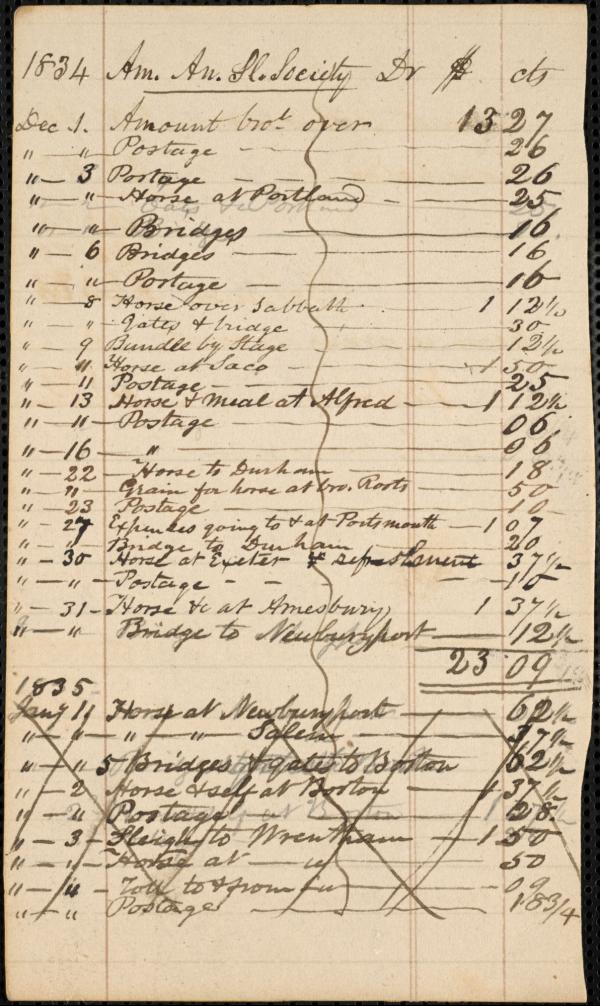 1834 Am. An. Sl. Society Dr $ cts
Dec 1. Amount brot over 13 27
" — " Postage — 26
" — 3 Postage — 26
" — " Horse at Portland — 25
" — " Bridges — 16
" — 6 Bridges — 16
" — " Postage — 16
" — 8 Horse over Sabbath 1 12½
" — " Gates & bridge 30
" — 9 Bundle by Stage — 12½
" — " Horse at Saco — 1 50
" — 11 Postage — 25
" — 13 Horse & meal at Alfred — 1 12½
" — " Postage — 06
" — 16 " — 06
" — 22 Horse to Durham — 18
" — " Grain for horse at bro. Roots 50
" — 23 Postage — 10
" — 27 Expenses going to & at Portsmouth — 1 07
" — " Bridge to Durham — 20
" — 30 Horse at Exeter & refreshment 37½
" — " Postage — 10
" — 31 — Horse &c at Amesbury, 1 37½
" — " Bridge to Newburyport — 12½
23 09
1835
Jany 1 Horse at Newburyport — 62½
" — " " — " Salem — 37½
" — " 5 Bridges & gate to Boston 62½
" — 2 Horse & self at Boston 1 37½
" — " Postage — 28
" — 3 — Sleigh to Wrentham — 1 50
" — " Horse at — " 50
" — 4 Toll to & from " — 09
" — " Postage — 183/4